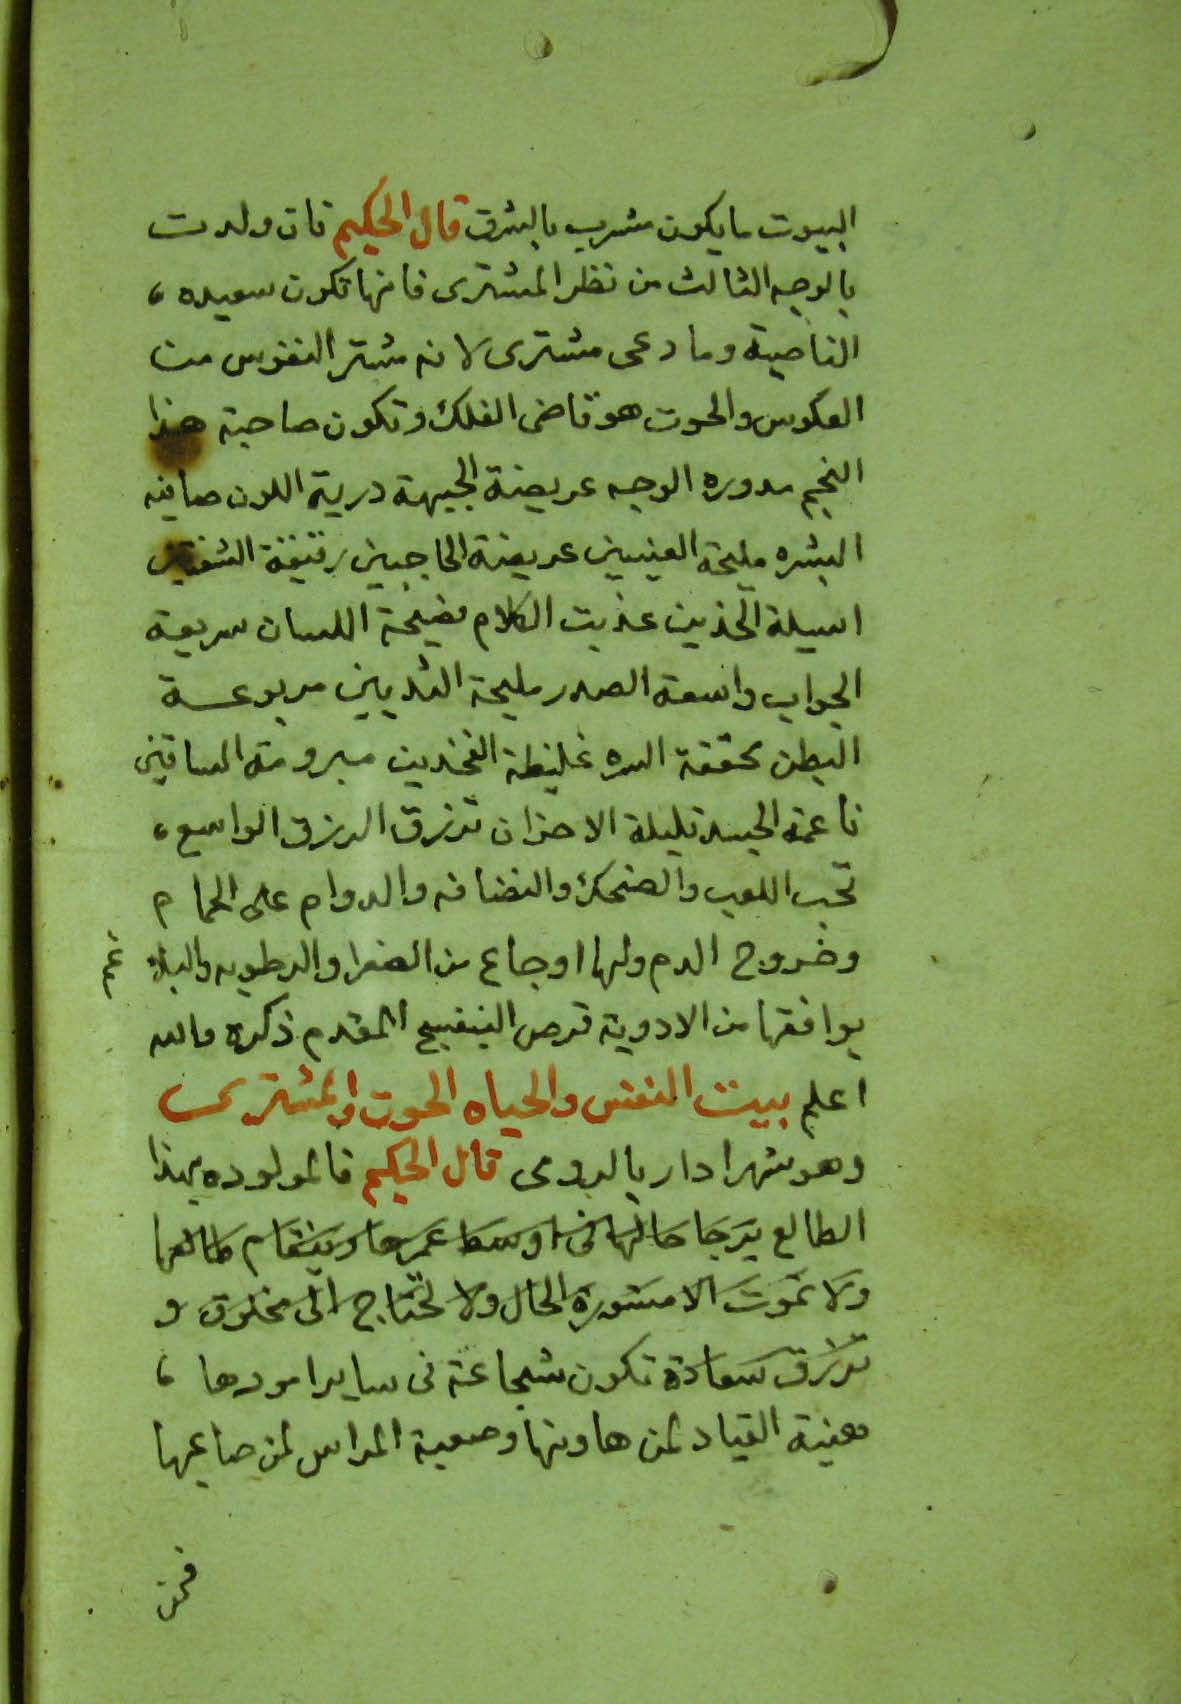 البيوت ما يكون مشرب بالشرق قال الحكيم فان ولدت
بالوجه الثالث من نظر المشترى فانها تكون سعيده ،
الناصية وما دعى مشترى لانه مشتر النفوس من
العكوس والحوت هو قاضى الفلك وتكون صاحبة هذا
النجم مدوره الوجه عريضة الجبهة درية اللون صافيه
البشره مليحة العينين عريضة الحاجبين رقيقة الشفتين
اسيلة الخدين عذبت الكلام فصيحة اللسان سريعة
الجواب واسعة الصدر مليحة الثديين مربوعة
البطن محققة السره غليظة الفخدين مبرومة الساقين
ناعمة الجسد قليلة الاحزان ترزق الرزق الواسع ،
تحب اللعب والضحك والنضافه والدوام على الحمام
وخروج الدم ولها اوجاع من الصفرا والرطوبه والبلاغم
يوافقها من الادوية قرص البنفسج المقدم ذكره والله
اعلم بيت النفس والحياه الحوت والمشترى
وهو شهر ادار بالرومى قال الحكيم فالمولوده بهذا
الطالع يرجا حالها فى اوسط عمرها وينقام طالعها
ولا تموت الا مستورة الحال ولا تحتاج الى مخلوق و
ترزق سعادة تكون شجاعة فى ساير امورها ،
هينة القياد لمن هاونها وصعبة المراس لمن صاعبها
فمن